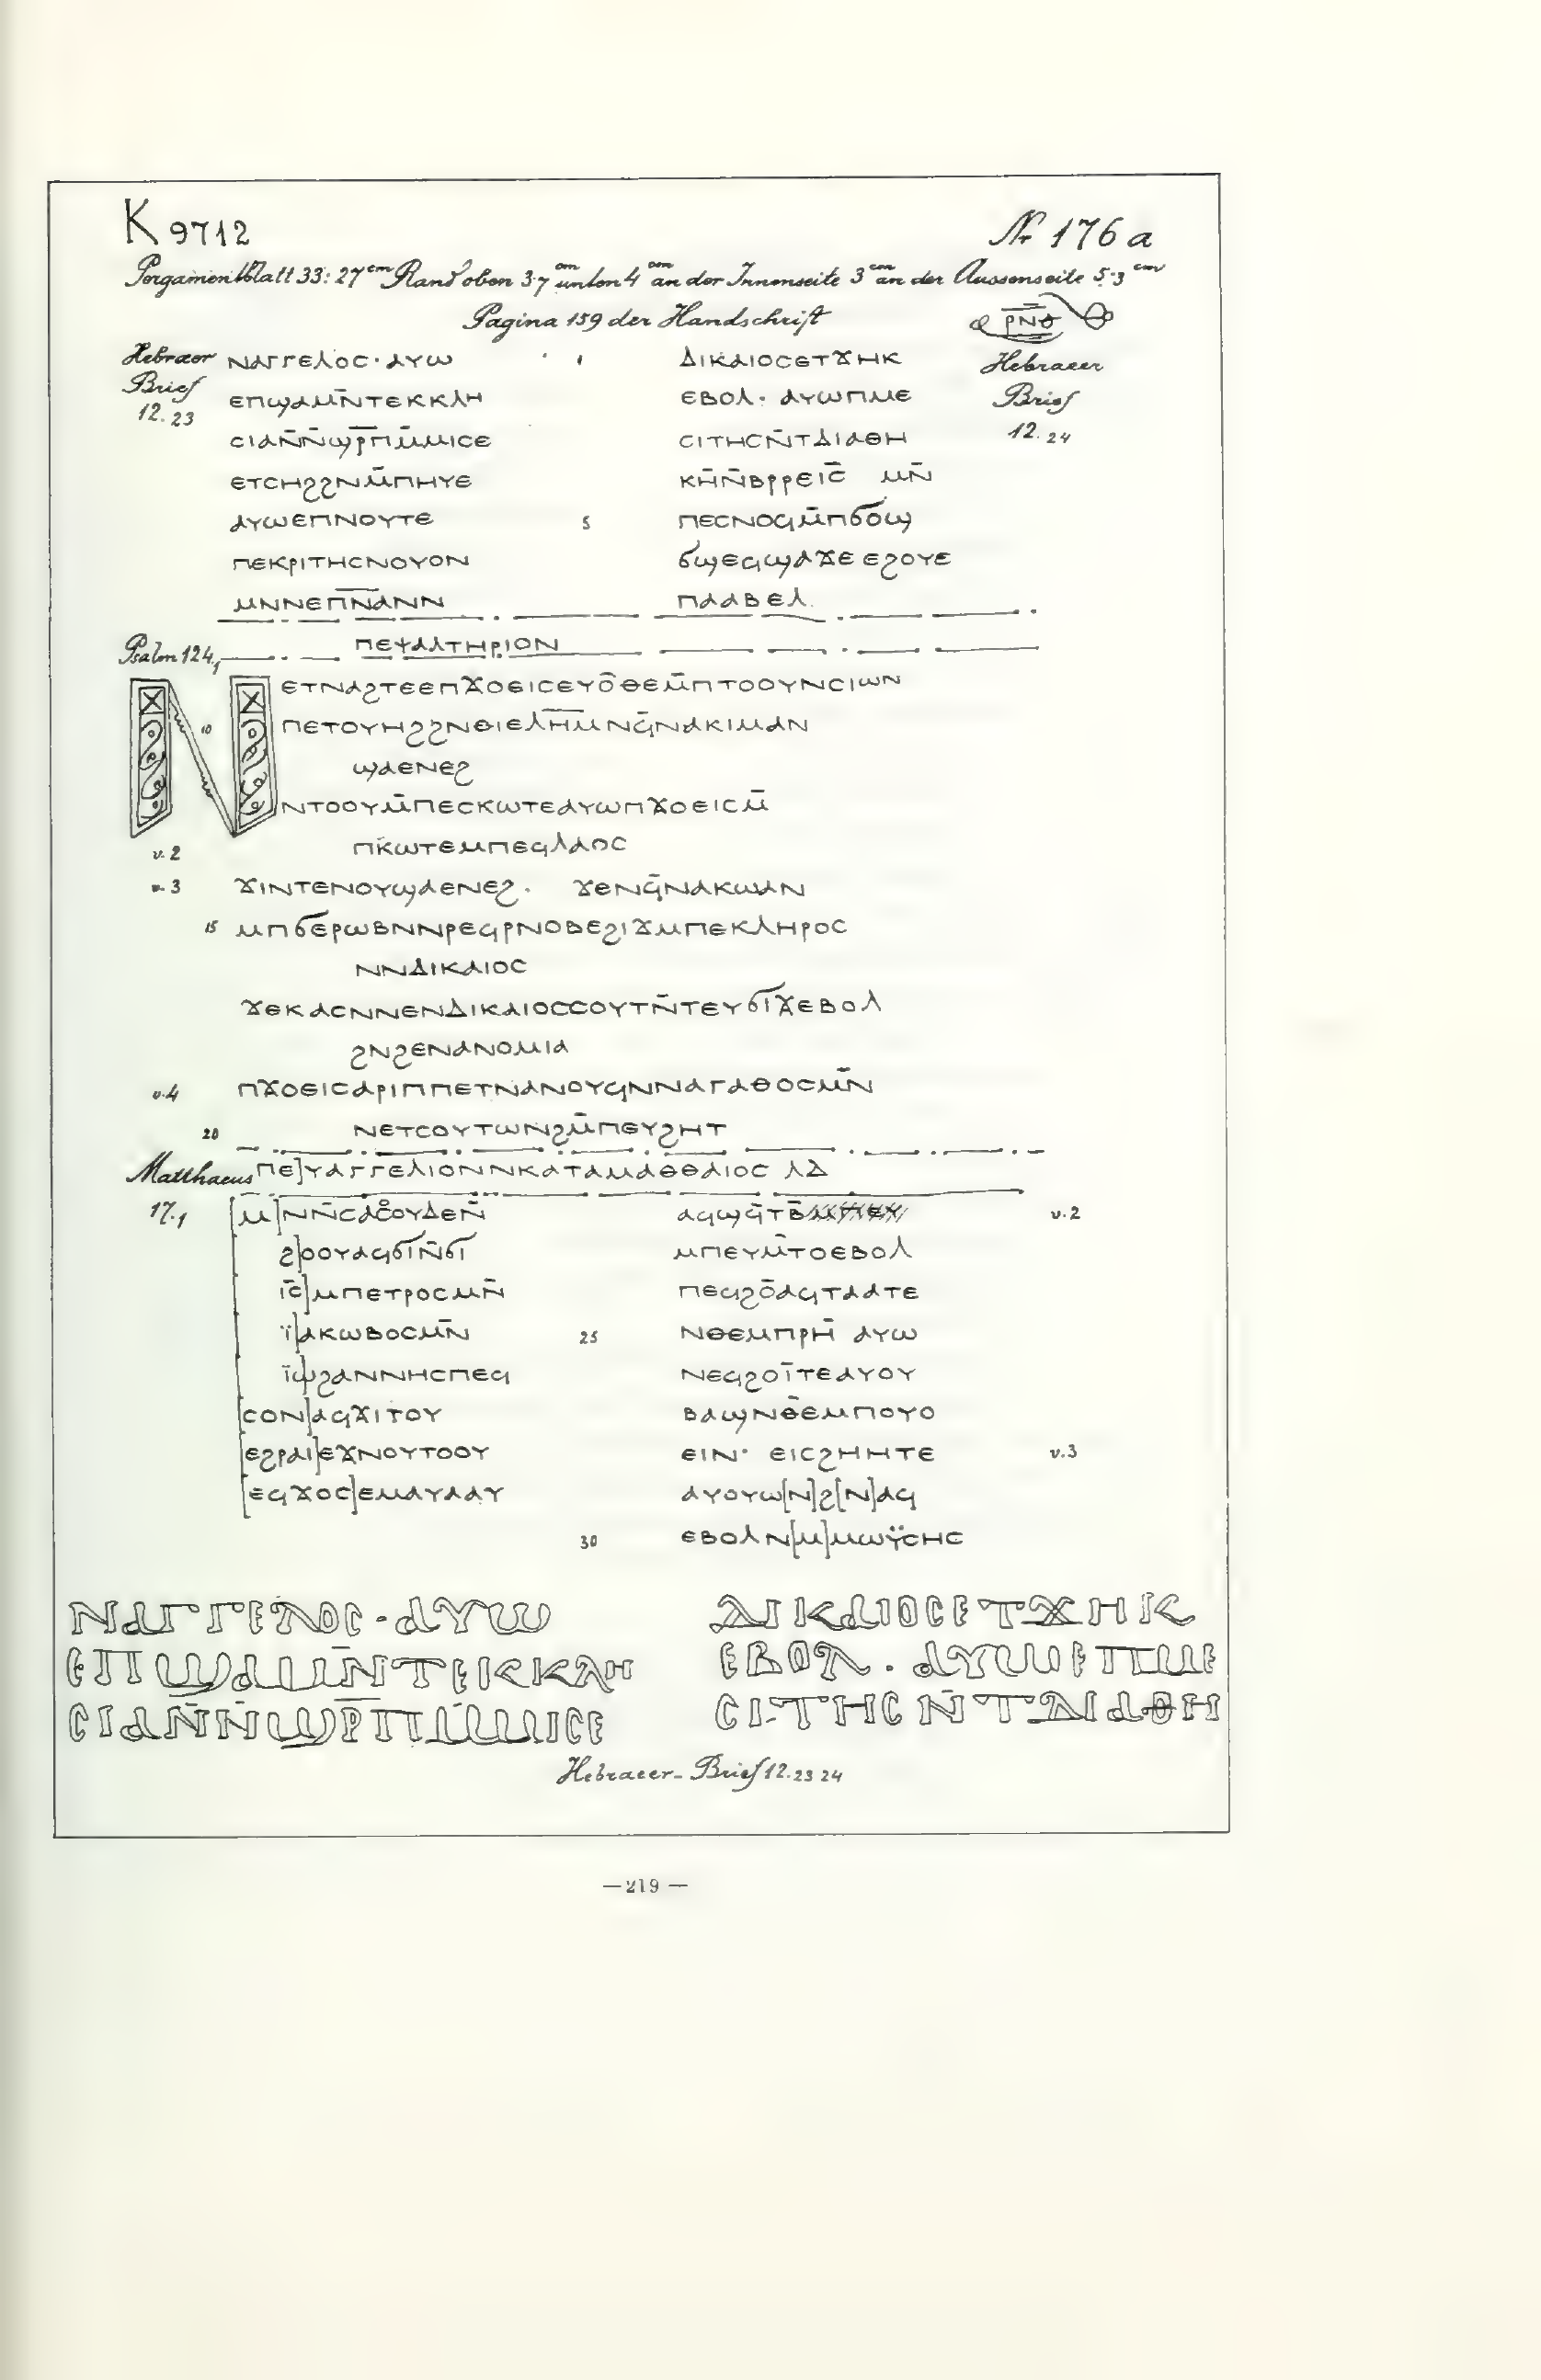 K 9712
Nr 176 a
Pergamentblatt 33 : 27 cm Rand oben 3·7 cm unten 4 cm an der Innenseite 3 cm an der Aussenseite 5·3 cm
Pagina 159 der Handschrift
ⲣ̅ⲛ̅ⲑ̅
Hebraer
Brief
12. 23
ⲛⲁⲅⲅⲉⲗⲟⲥ · ⲁⲩⲱ
ⲉⲡϣⲁⲙⲛ̄ⲧⲉⲕⲕⲗⲏ
ⲥⲓⲁⲛ̄ⲛ̄ϣⲣ̅ⲡ̅ⲙ̄ⲙⲓⲥⲉ
ⲉⲧⲥⲏϩϩⲛⲙ̄ⲡⲏⲩⲉ
ⲁⲩⲱⲉⲡⲛⲟⲩⲧⲉ
ⲡⲉⲕⲣⲓⲧⲏⲥⲛⲟⲩⲟⲛ
ⲙⲛⲛⲉⲡ̅ⲛ̅ⲁⲛⲛ
1
5
ⲇⲓⲕⲁⲓⲟⲥⲉⲧϫⲏⲕ
ⲉⲃⲟⲗ · ⲁⲩⲱⲡⲙⲉ
ⲥⲓⲧⲏⲥⲛ̄ⲧⲇⲓⲁⲑⲏ
ⲕⲏ̄ⲛ̄ⲃⲣⲣⲉⲓⲥ̄ ⲙⲛ̄
ⲡⲉⲥⲛⲟϥⲙ̄ⲡϭⲟϣ
ϭϣⲉϥϣⲁϫⲉ ⲉϩⲟⲩⲉ
ⲡⲁⲁⲃⲉⲗ
Hebraeer
Brief
12. 24
Psalm 124,1
ⲡⲉⲯⲁⲗⲧⲏⲣⲓⲟⲛ
ⲛⲉⲧⲛⲁϩⲧⲉⲉⲡϫⲟⲉⲓⲥⲉⲩⲟ̄ⲑⲉⲙ̄ⲡⲧⲟⲟⲩⲛⲥⲓⲱⲛ
10 ⲡⲉⲧⲟⲩⲏϩϩⲛⲑⲓⲉⲗ̅ⲏ̅ⲙ̅ⲛϥ̄ⲛⲁⲕⲓⲙⲁⲛ
ϣⲁⲉⲛⲉϩ
ⲛⲧⲟⲟⲩⲙ̄ⲡⲉⲥⲕⲱⲧⲉⲁⲩⲱⲡϫⲟⲉⲓⲥⲙ̄
v. 2 ⲡⲕⲱⲧⲉⲙⲡⲉϥⲗⲁⲟⲥ
v. 3 ϫⲓⲛⲧⲉⲛⲟⲩϣⲁⲉⲛⲉϩ · ϫⲉⲛϥ̄ⲛⲁⲕⲱⲁⲛ
15 ⲙⲡϭⲉⲣⲱⲃⲛⲛⲣⲉϥⲣⲛⲟⲃⲉϩⲓϫⲙⲡⲉⲕⲗⲏⲣⲟⲥ
ⲛⲛⲇⲓⲕⲁⲓⲟⲥ
ϫⲉⲕⲁⲥⲛⲛⲉⲛⲇⲓⲕⲁⲓⲟⲥⲥⲟⲩⲧⲛ̄ⲧⲉⲩϭⲓϫⲉⲃⲟⲗ
ϩⲛϩⲉⲛⲁⲛⲟⲙⲓⲁ
v. 4 ⲡϫⲟⲉⲓⲥⲁⲣⲓⲡⲡⲉⲧⲛⲁⲛⲟⲩϥⲛⲛⲁⲅⲁⲑⲟⲥⲙⲛ̄
20 ⲛⲉⲧⲥⲟⲩⲧⲱⲛϩⲙ̄ⲡⲉⲩϩⲏⲧ
Matthaeus ⲡⲉ]ⲩⲁⲅⲅⲉⲗⲓⲟⲛⲛⲕⲁⲧⲁⲙⲁⲑⲑⲁⲓⲟⲥ ⲗⲇ
17.1
[ⲙ]ⲛⲛ̄ⲥⲁⲥⲟⲟⲩⲇⲉⲛ̄
ϩ]ⲟⲟⲩⲁϥϭⲓⲛ̄ϭⲓ
ⲓ̅ⲥ̅]ⲙⲡⲉⲧⲣⲟⲥⲙⲛ̄
ⲓ̈]ⲁⲕⲱⲃⲟⲥⲙⲛ̄
ⲓ̈ⲱ]ϩⲁⲛⲛⲏⲥⲡⲉϥ
[ⲥⲟⲛ]ⲁϥϫⲓⲧⲟⲩ
[ⲉϩⲣⲁⲓ]ⲉϫⲛⲟⲩⲧⲟⲟⲩ
[ⲉϥϫⲟⲥ]ⲉⲙⲁⲩⲁⲁⲩ
25
30
ⲁϥϣϥ̄ⲧⲃ̄ⲙⲡⲉⲩ
ⲙⲡⲉⲩⲙ̄ⲧⲟⲉⲃⲟⲗ
ⲡⲉϥϩⲟ̄ⲁϥⲧⲁⲁⲧⲉ
ⲛⲑⲉⲙⲡⲣⲏ̄ ⲁⲩⲱ
ⲛⲉϥϩⲟⲓ̄ⲧⲉⲁⲩⲟⲩ
ⲃⲁϣⲛⲑⲉⲙⲡⲟⲩⲟ
ⲉⲓⲛ · ⲉⲓⲥϩⲏⲏⲧⲉ
ⲁⲩⲟⲩⲱ[ⲛ]ϩ[ⲛ]ⲁϥ
ⲉⲃⲟⲗⲛ[ⲙ]ⲙⲱⲩ̈ⲥⲏⲥ
v. 2
v. 3
ⲛⲁⲅⲅⲉⲗⲟⲥ · ⲁⲩⲱ
ⲉⲡϣⲁⲙⲛ̄ⲧⲉⲕⲕⲗⲏ
ⲥⲓⲁⲛ̄ⲛ̄ϣⲣ̅ⲡ̅ⲙ̄ⲙⲓⲥⲉ
ⲇⲓⲕⲁⲓⲟⲥⲉⲧϫⲏⲕ
ⲉⲃⲟⲗ · ⲁⲩⲱⲉⲡⲙⲉ
ⲥⲓⲧⲏⲥⲛ̄ⲧⲇⲓⲁⲑⲏ
Hebraeer - Brief 12. 23 24
— 219 —